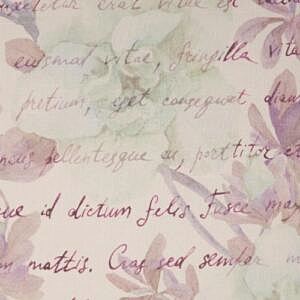 erat vitae est
euismod vitae, fringilla vita
pretium, eget consequat diam
pellentesque eu, porttitor et
id dictum felis Fusce
m mattis. Cras sed semper m